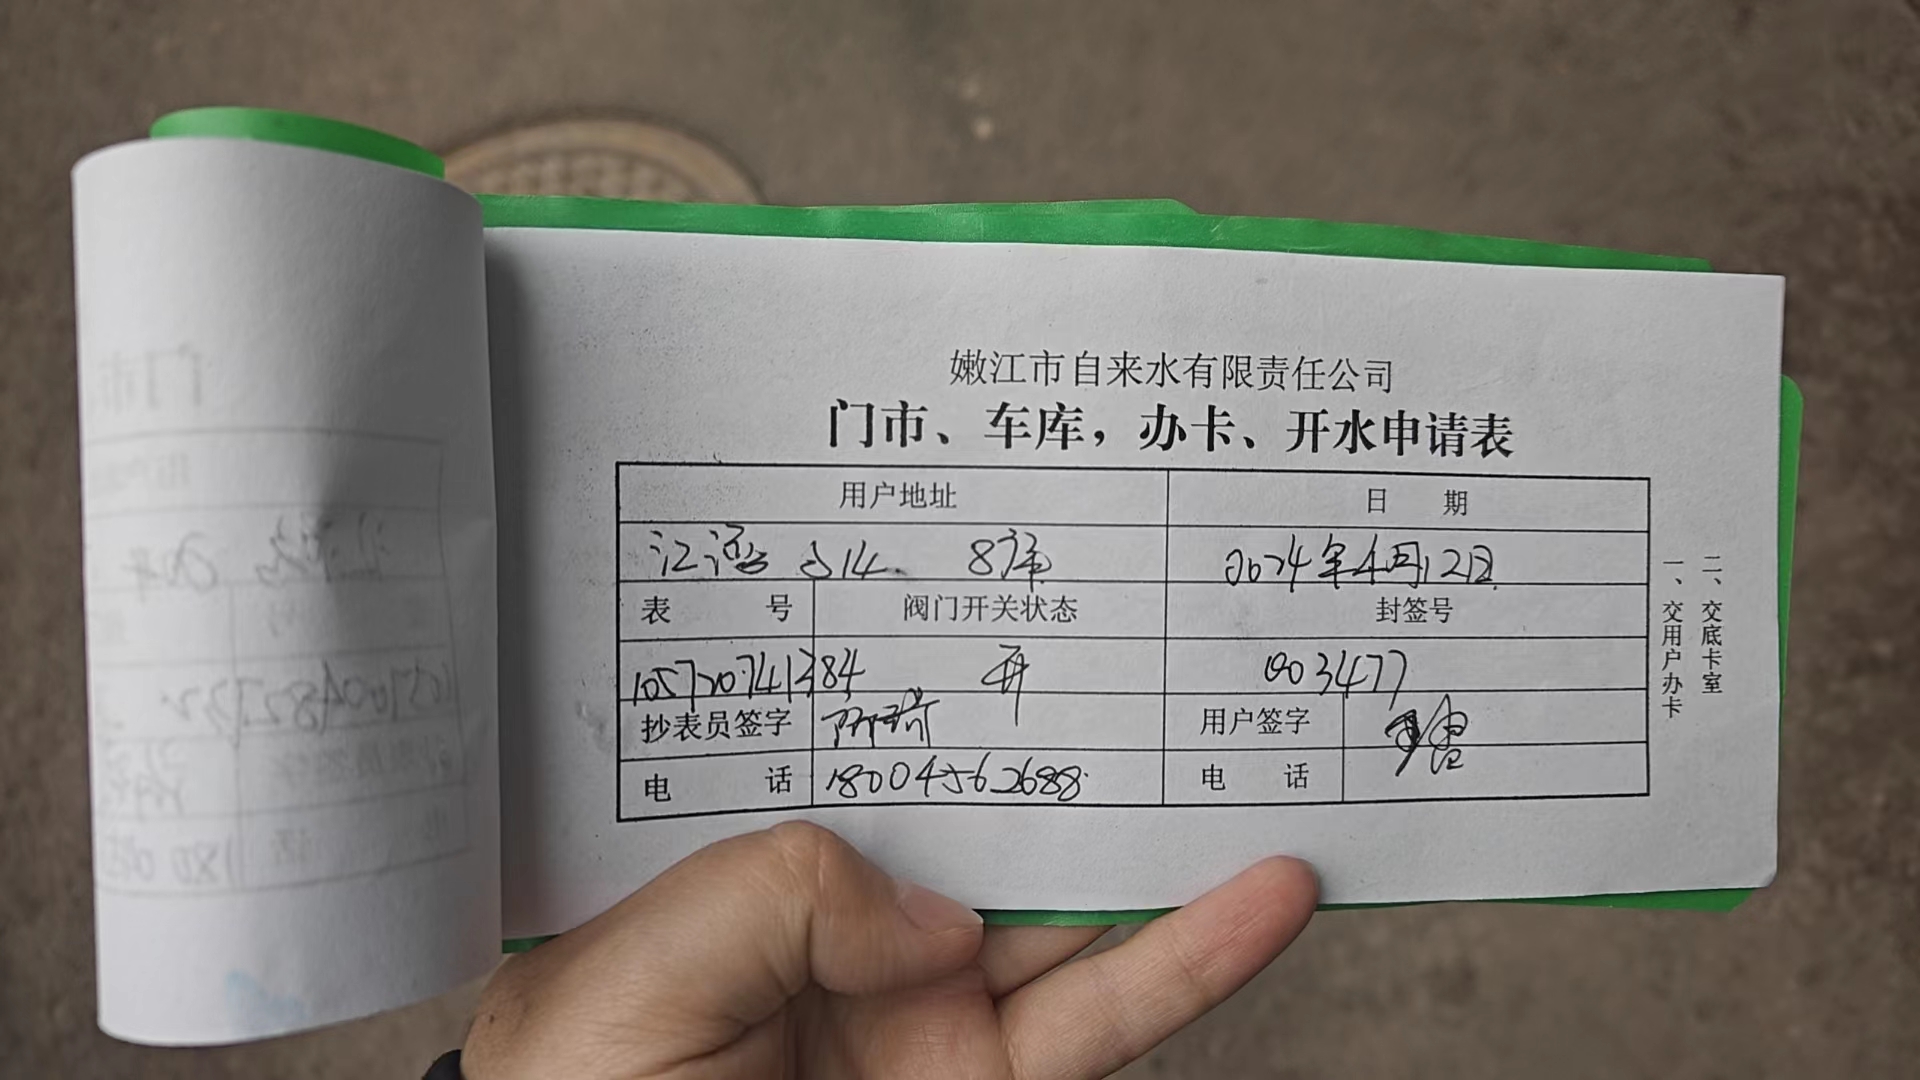 嫩江市自来水有限责任公司
门市、车库，办卡、开水申请表
用户地址 日 期
江湾 514 8门 2024年4月12日
表 号 阀门开关状态 封签号
105720741384 开 003477
抄表员签字 用户签字
电 话 18004562688 电 话
一、交用户办卡
二、交底卡室